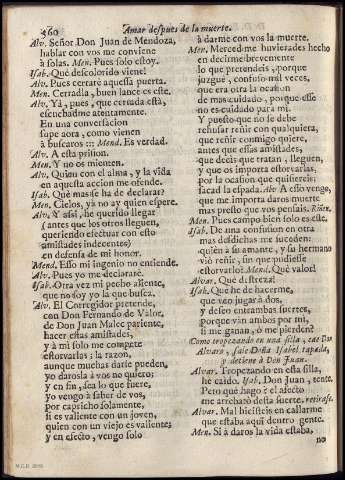 360
Amar despues de la muerte.
Alv. Señor Don Juan de Mendoza,
hablar con vos me conviene
à solas. Men. Pues solo estoy.
Isab. Què descolorido viene!
Alv. Pues cerrarè aquessa puerta.
Men. Cerradla, buen lance es este.
Alv. Yà, pues, que cerrada està,
escuchadme atentamente.
En una conversacion
supe aora, como vienen
à buscaros ::: Mend. Es verdad.
Alv. A esta prision.
Men. Y no os mienten.
Alv. Quien con el alma, y la vida
en aquesta accion me ofende.
Isab. Què mas se ha de declarar?
Men. Cielos, yà no ay quien espere.
Alv. Y assi, he querido llegar
(antes que los otros lleguen,
queriendo efectuar con esto
amistades indecentes)
en defensa de mi honor.
Mend. Esso mi ingenio no entiende.
Alv. Pues yo me declararè.
Isab. Otra vez mi pecho aliente,
que no soy yo la que busca.
Alv. El Corregidor pretende,
con Don Fernando de Valor,
de Don Juan Malec pariente,
hacer estas amistades,
y à mi solo me compete
estorvarlas: la razon,
aunque muchas darse pueden,
yo darosla à vos no quiero;
y en fin, sea lo que fuere,
yo vengo à saber de vos,
por capricho solamente,
si es valiente con un joven,
quien con un viejo es valiente;
y en efecto, vengo solo
à darme con vos la muerte.
Men. Merced me huvierades hecho
en decirme brevemente
lo que pretendeis, porque
juzguè, confuso mil veces,
que era otra la ocasion
de mas cuidado, porque esse
no es cuidado para mi.
Y puesto que no se debe
rehusar reñir con qualquiera,
que reñir conmigo quiere,
antes que essas amistades,
que decis que tratan, lleguen,
y que os importa estorvarlas,
por la ocasion que quisiereis:
sacad la espada. Alv. A esso vengo,
que me importa daros muerte
mas presto que vos pensais. Riñen.
Men. Pues campo bien solo es este.
Isab. De una confusion en otra
mas desdichas me suceden:
quièn à su amante, y su hermano
viò reñir, sin que pudiesse
estorvarlo? Mend. Què valor!
Alvar. Què destreza!
Isab. Què he de hacerme,
que veo jugar à dos,
y deseo entrambas suertes,
porque vàn ambos por mi,
si me ganan, ò me pierden?
Como tropezando en una silla, cae Don
Alvaro, sale Doña Isabel tapada,
y detiene à Don Juan.
Alvar. Tropezando en esta silla,
he caido. Isab. Don Juan, tente.
Pero què hago? el afecto
me arrebatò desta suerte. retirase.
Alvar. Mal hicisteis en callarme
que estaba aqui dentro gente.
Men. Si à daros la vida estaba,
no